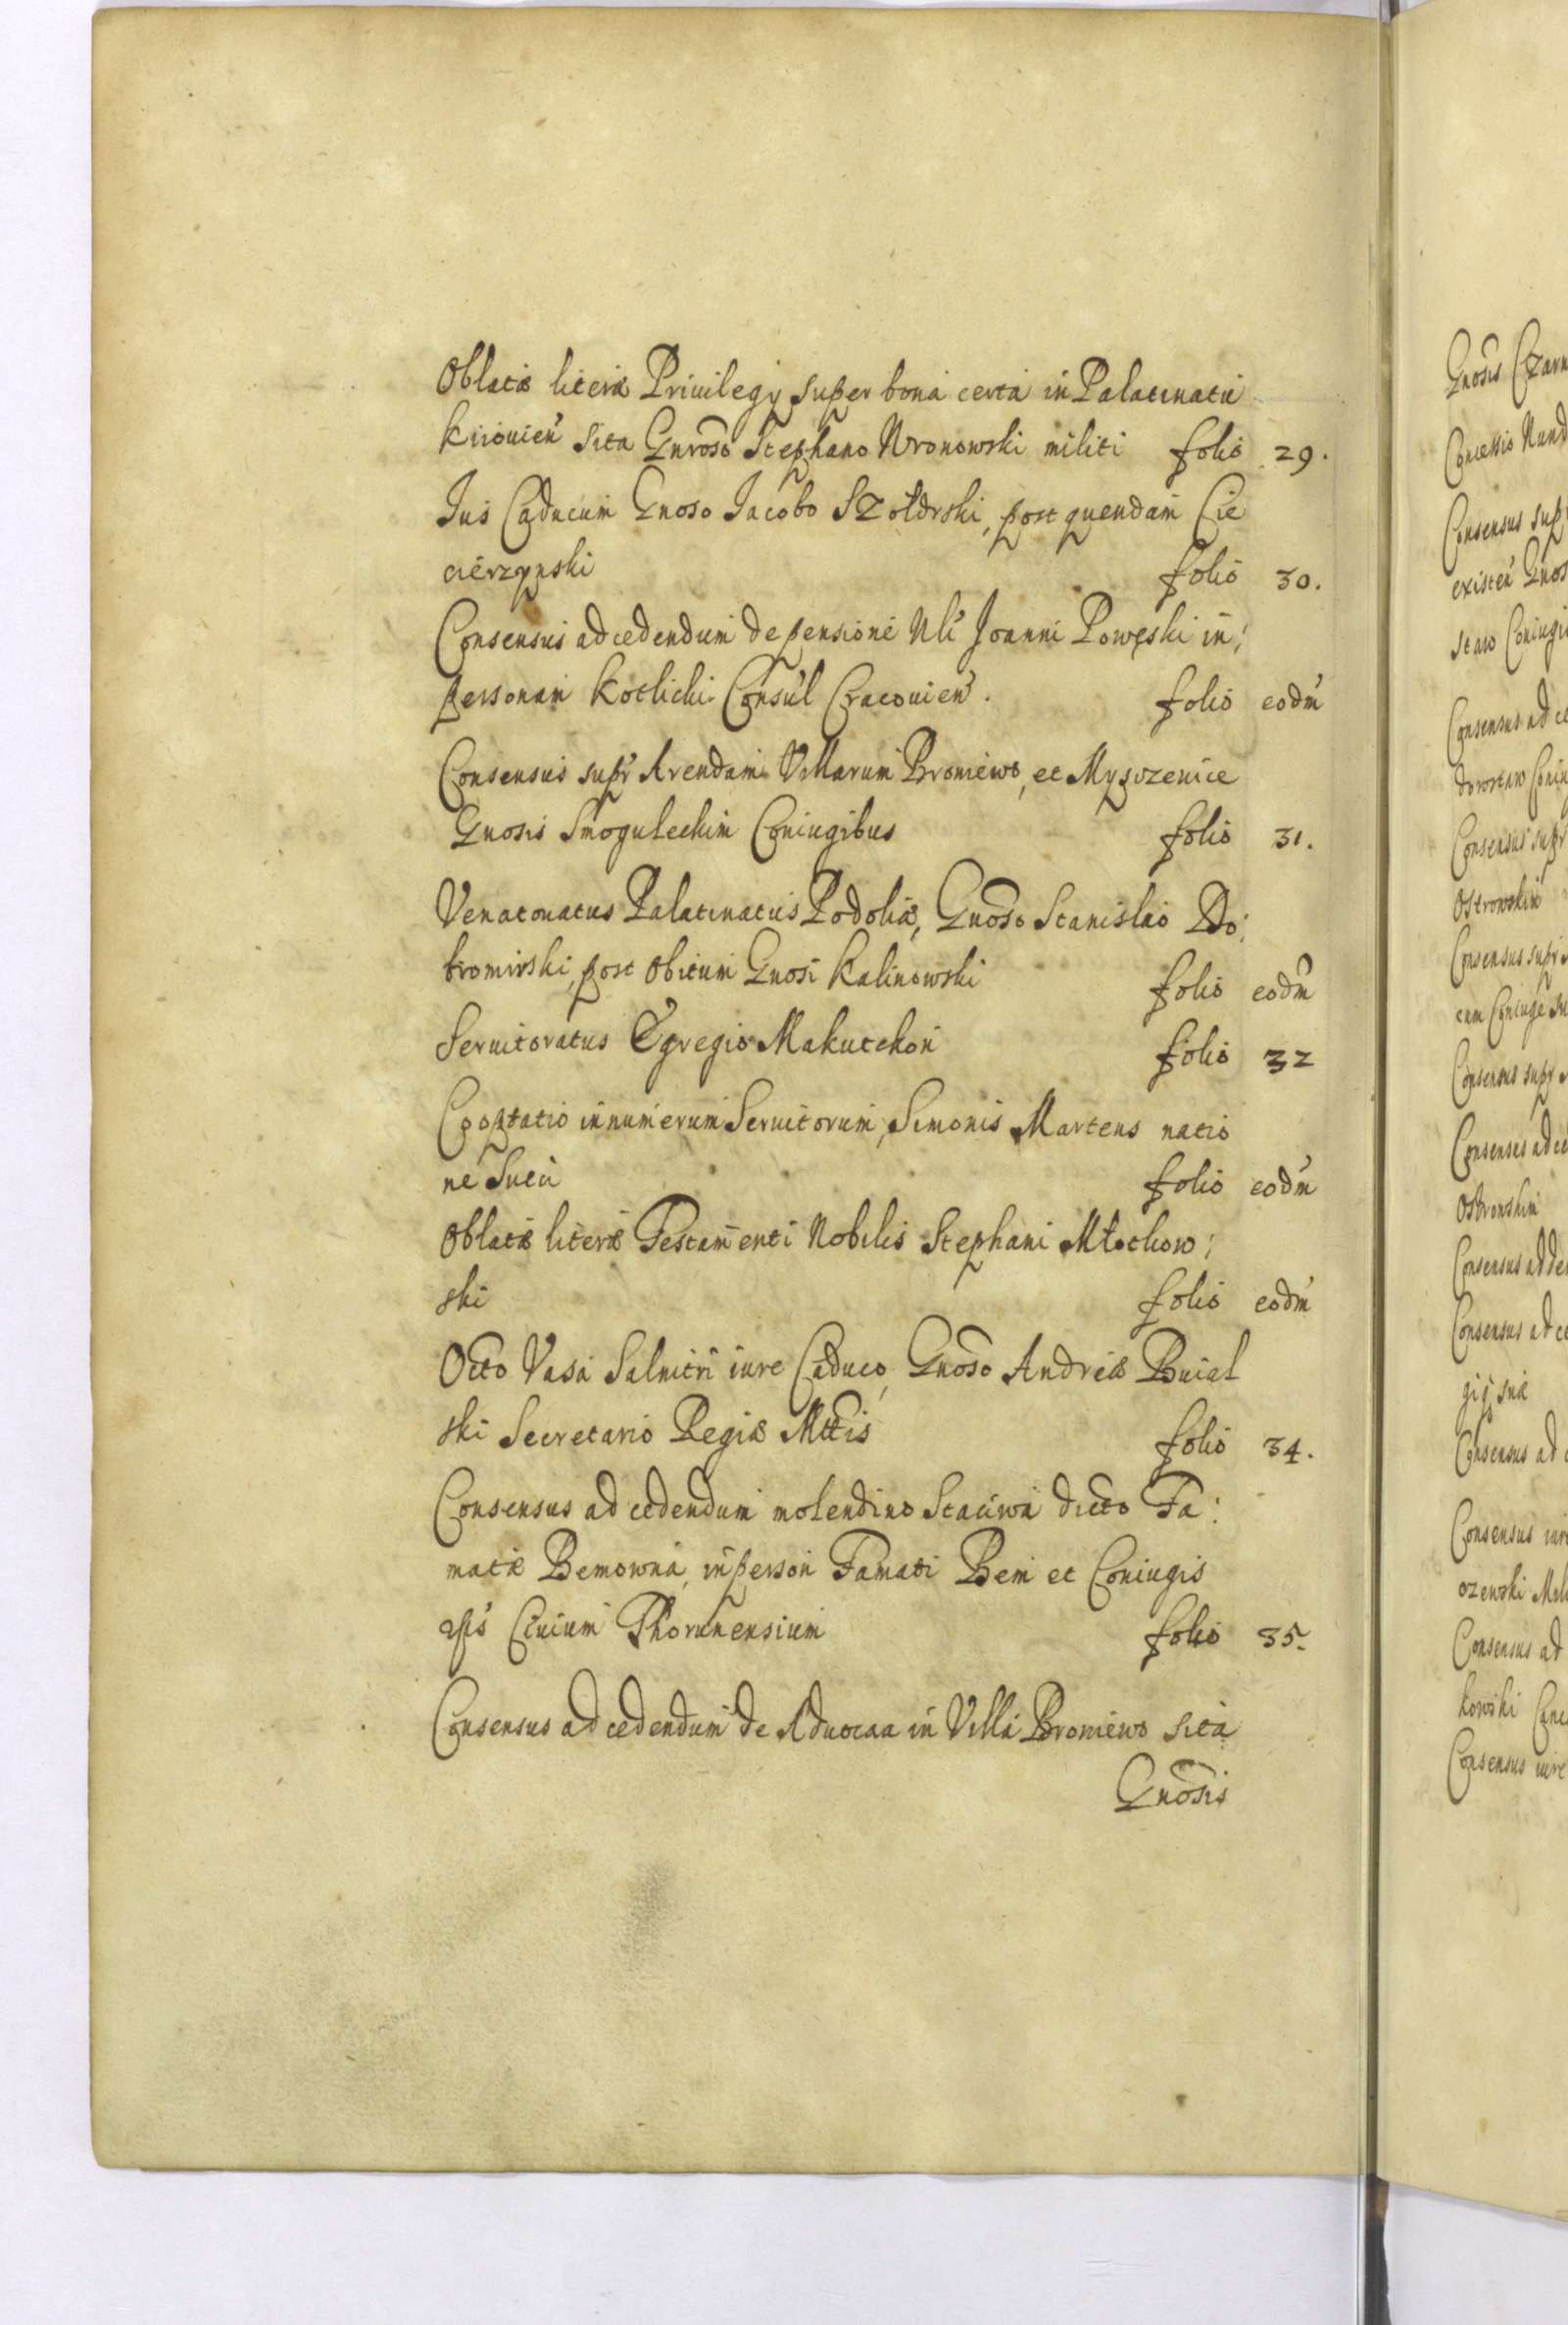 Oblatæ literæ Privilegy super bona certa in Palatinatu
Kiiouien sita Gnroso Stephano Wronowski militi folio 29.
Ius Caducum Gnoso Jacobo Szołdrski, post quendam Cie
cierzynski folio 30.
Consensus ad cedendum de pensione Nli Joanni Powęski in;
personam Kotlicki Consul Cracouien. folio eodm
Consensus supr Arendam Villarum Broniewo, et
Gnosis Smoguleckim Coniugibus folio 31.
Venatonatus Palatinatus Podoliæ, Gnoso Stanislao Do:
bromirski, post obitum Gnosi Kalinowski folio eodm
Seruitoratus Egregio Makutchon folio 32
Cooptatio in numerum Seruitorum, Simonis Martens natio
ne Sueci folio eodm
Oblatæ literæ Testamenti Nobilis Stephani Młochow;
ski folio eodm
Octo Vasa Salnitri iure Caduco, Gnoso Andreæ Buial
ski Secretario Regiæ Mttis folio 34.
Consensus ad cedendum molendino Staciwa dicto Fa:
matæ Bemowna, in person Famati Bem et Coniugis
Ciuium Thorunensium folio 35.
Consensus ad cedendum de Aduocaa in Villa Broniewo sita
Gnosis
Gnosis Czarn
Concessio Nund
Consensus supr
existen Gnos
staw Coniugi
Consensus ad ce
Consensus supr
Ostrowskim
Consensus supr
cum Coniuge su
Consensus supr
Consensus ad ce
Ostronskim
Consensus ad de
Consensus ad ce
gis suæ
Consensus ad c
Consensus iure
ozewski
Consensus ad
kowski
Consensus iure